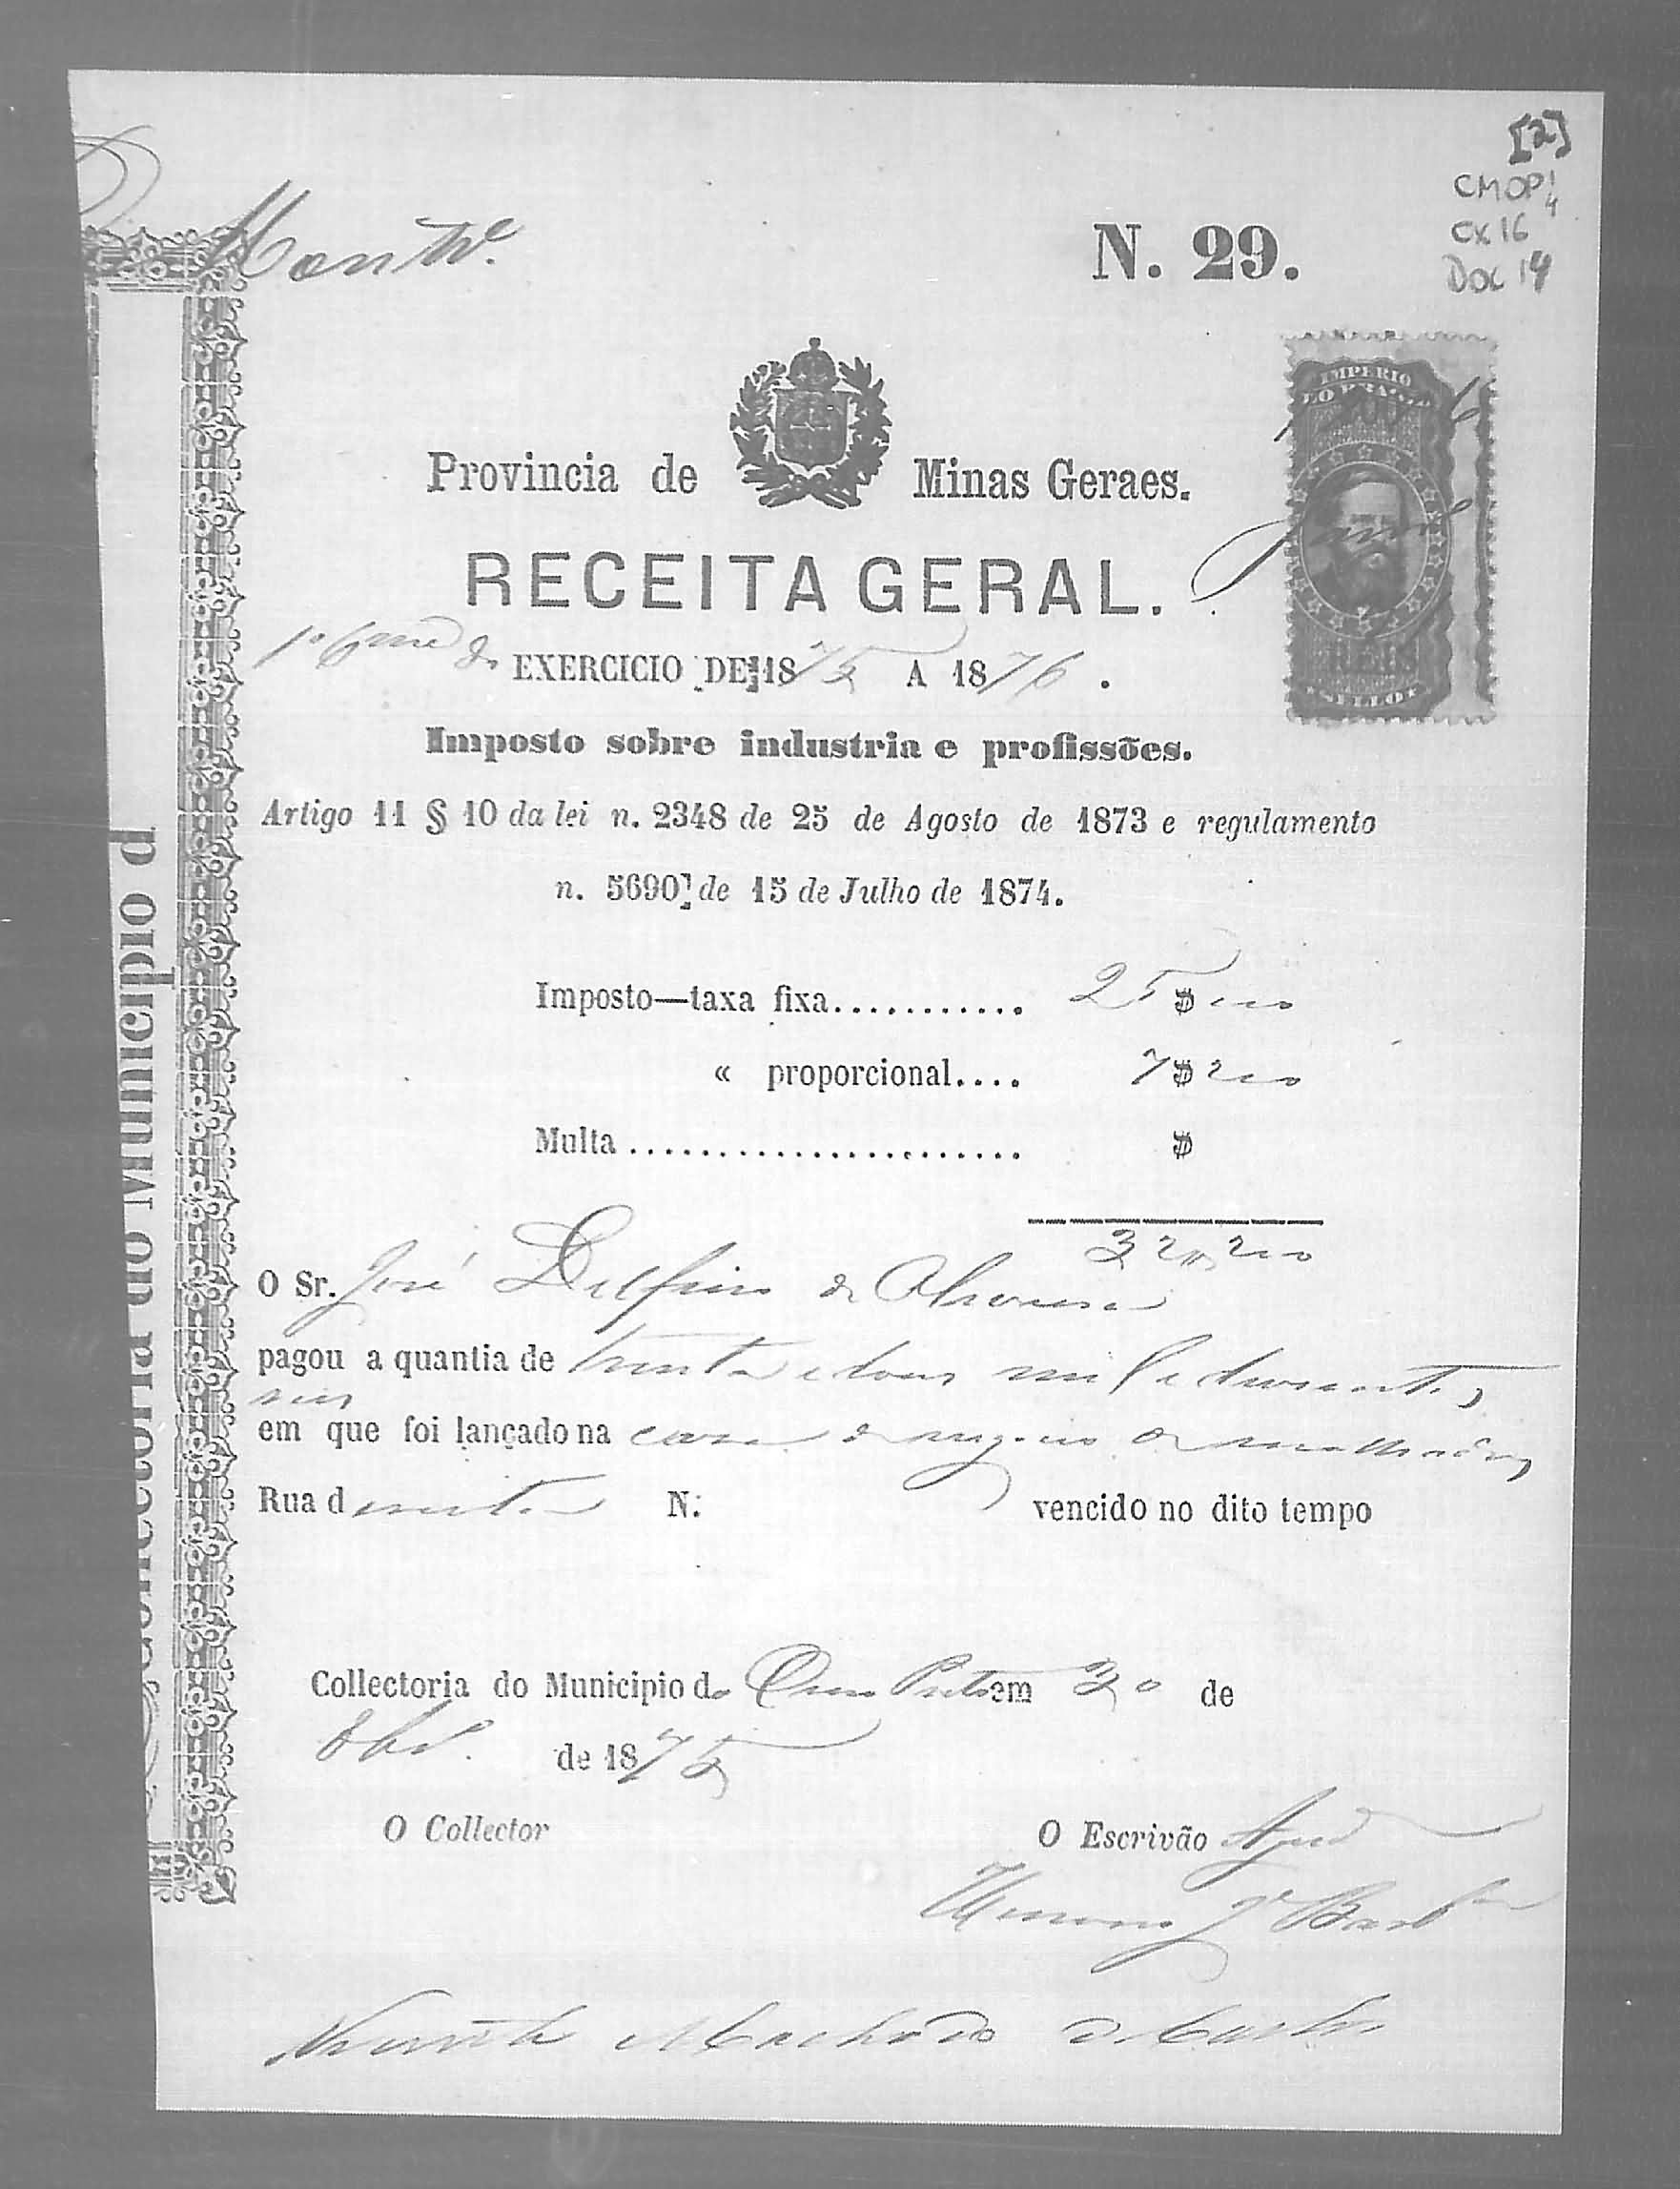 [2]
CMOP
Cx 16
Doc 14
N. 29.
IMPERIO
DO BRASIL
REIS
SELLO
Provincia de Minas Geraes.
RECEITA GERAL.
1º EXERCICIO DE 1875 A 1876.
Imposto sobre industria e profissões.
Artigo 11 § 10 da lei n. 2348 de 25 de Agosto de 1873 e regulamento
n. 5690 de 15 de Julho de 1874.
Imposto—taxa fixa........... 25$000
« proporcional.... 7$200
Multa ....................... $
32,,200
O Sr. José Delfino de Oliveira
pagou a quantia de trinta e dous mil e duzentos
reis
em que foi lançado na casa de negocio de molhados
Rua direita N. vencido no dito tempo
Collectoria do Municipio do Ouro Preto em 30 de
8bro. de 1875
O Collector O Escrivão
Vicente Machado de Castro
Collectoria do Municipio d